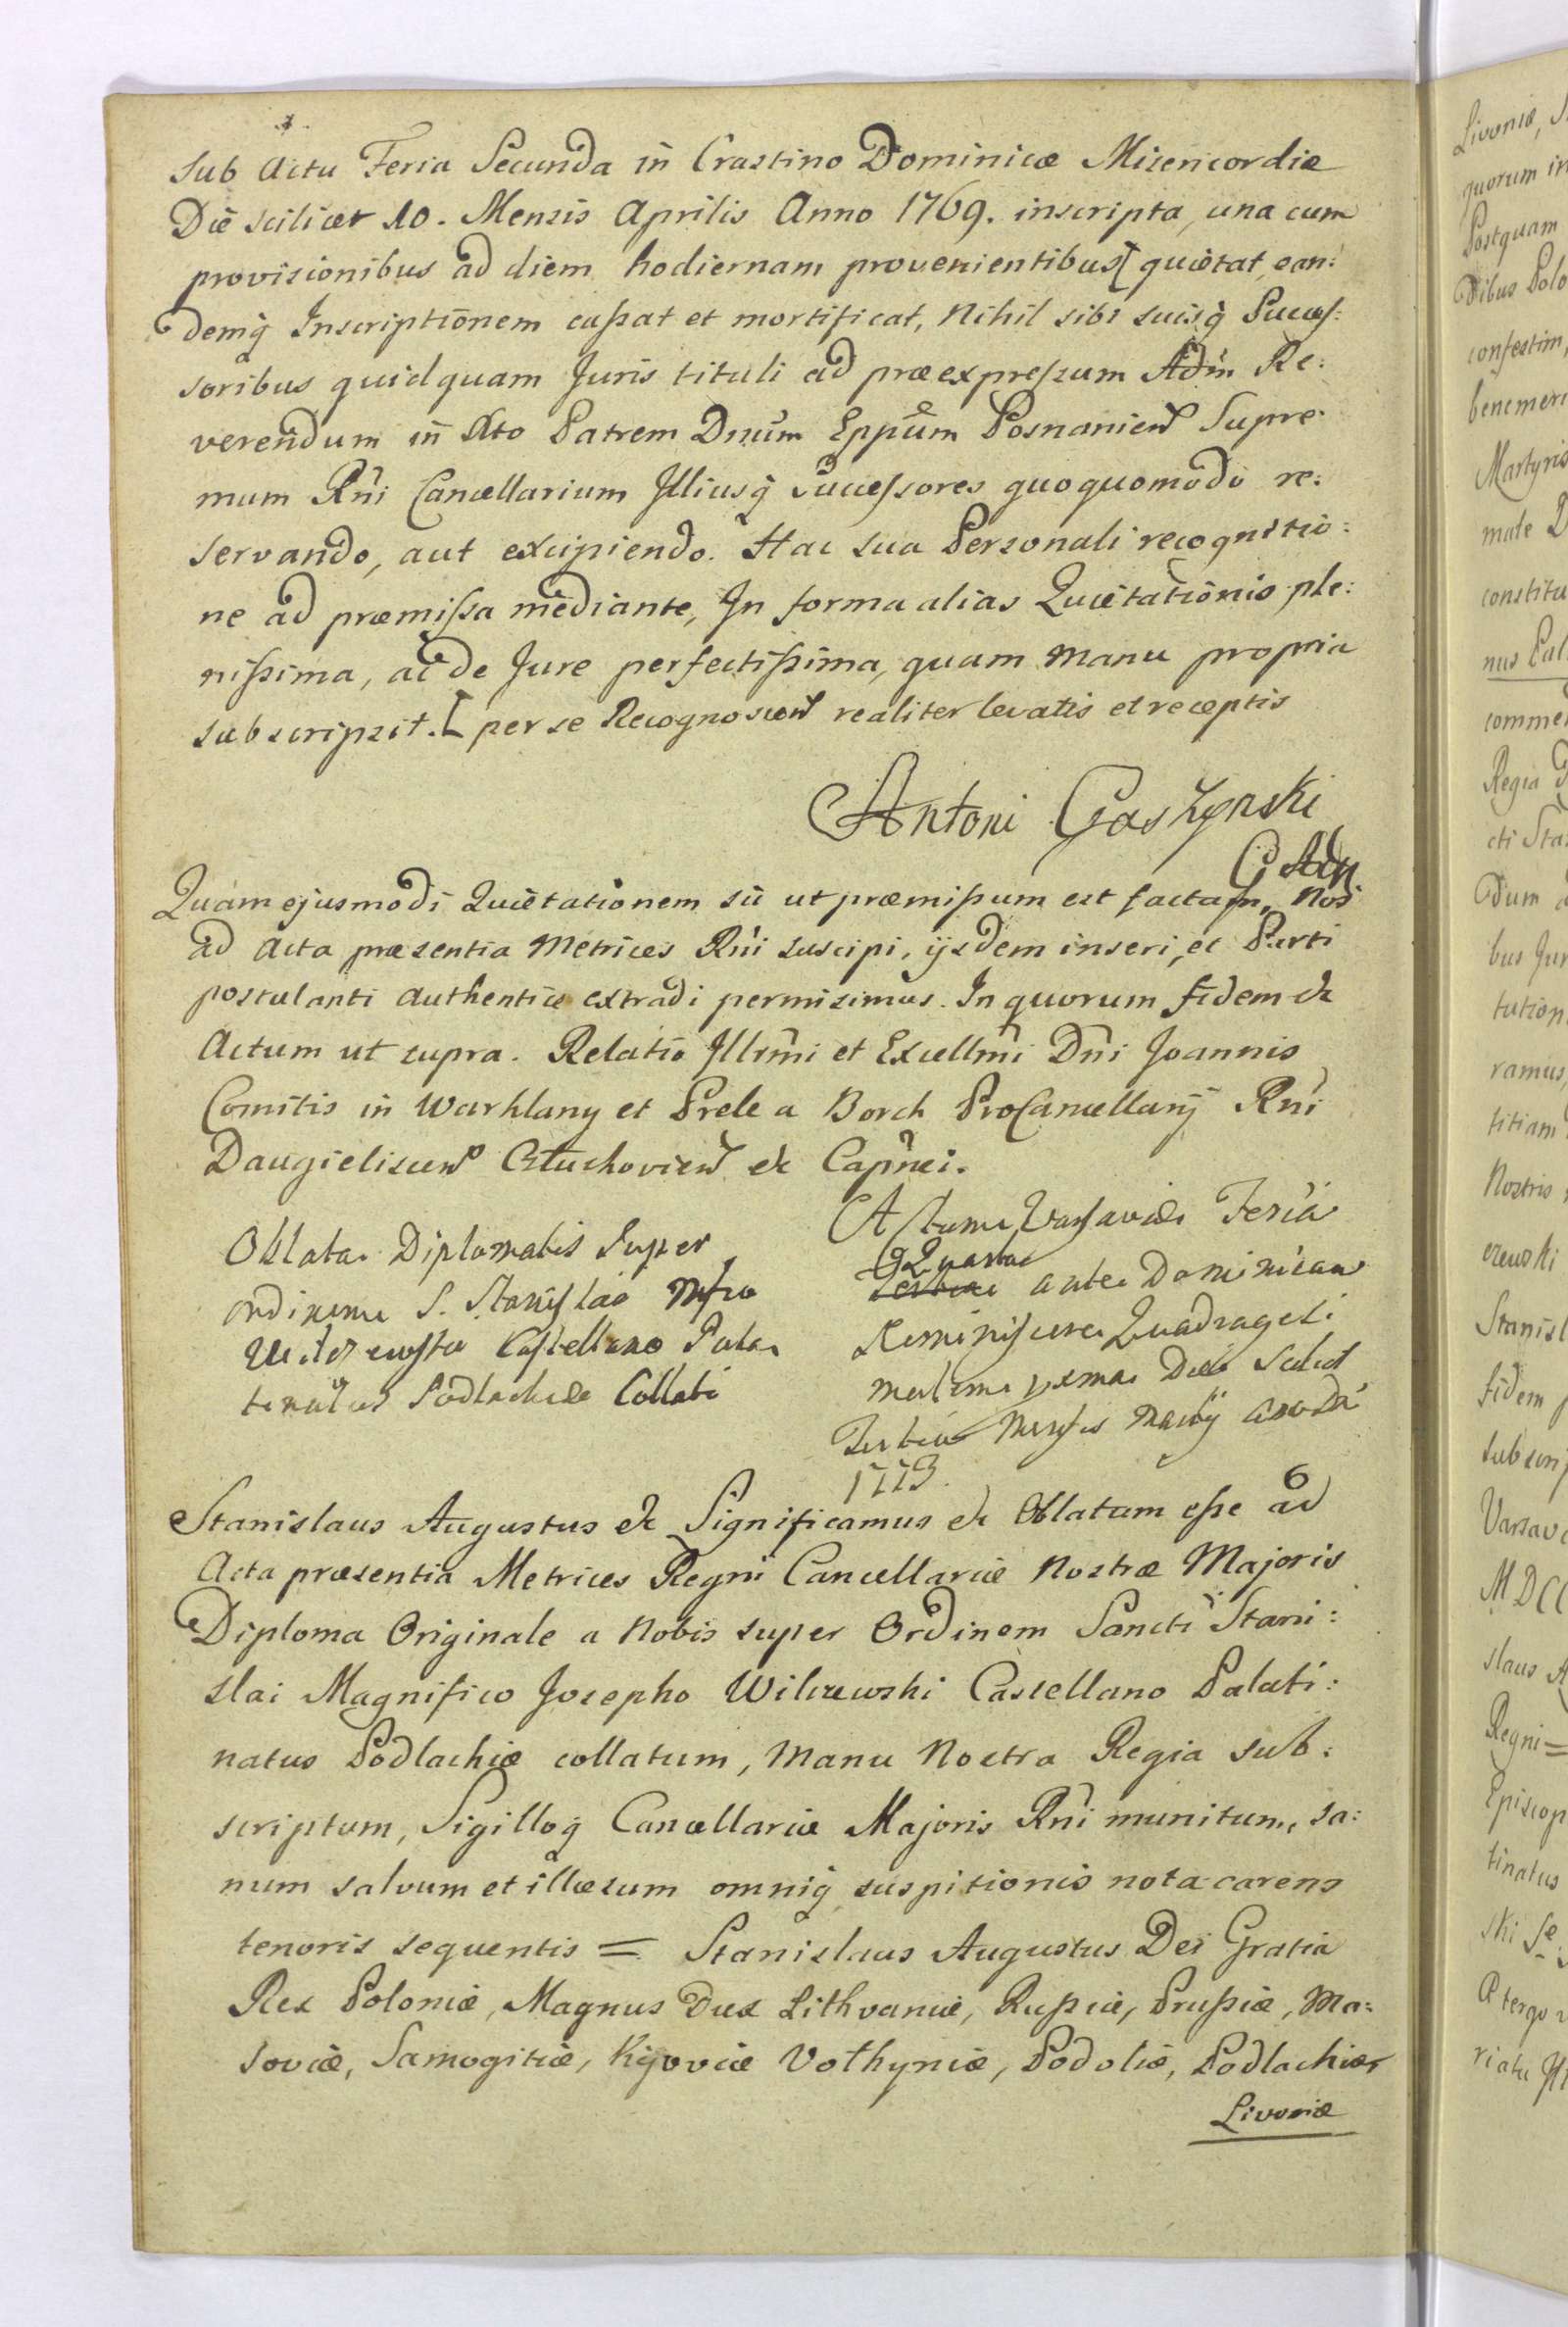 Sub Actu Feria Secunda in Crastino Dominicæ Misericordiæ
Die scilicet 10. Mensis Aprilis Anno 1769. inscripta, una cum
provisionibus ad diem hodiernam provenientibus [ quietat, ean:
demq̃ Inscriptionem caſsat et mortificat, Nihil sibi suisq̃ Succeſ:
soribus quidquam Juris tituli ad præexpreſsum Adm̃ Re:
verendum in Xto Patrem Dnũm Eppũm Posnanien Supre:
mum Rñi Cancellarium Illiusq̃ Succeſsores quoquomodo re:
servando, aut excipiendo. Hac sua Personali recognitio:
ne ad præmiſsa mediante, In forma alias Quietationis ple:
niſsima, ac de Jure perfectiſsima, quam Manu propria
subscripsit. [ per se Recognoscen realiter levatis et receptis
Antoni Gaszynski
Quam ejusmodi Quietationem sic ut præmiſsum est factam, Nos
ad Acta præsentia Metrices Rñi suscipi, ijsdem inseri, et Parti
postulanti Authentice extradi permisimus. In quorum fidem &
Actum ut supra. Relatio Illrm̃i et Excellm̃i Dñi Joannis
Comitis in Warklany et Prele a Borch ProCancellarij Rñi
Daugielizcen Gluchovien & Capnei.
Oblata Diplomatis Super
ordinem S. Stanislao Mfco
Wilczewski Castellano Pala
tinatus Podlachiæ Collati
Actum Varsaviæ Feria
Quarta
Tertia ante Dominicam
Reminiscere Quadragesi
malem primam Die Scilicet
Tertia Mensis Martij Anno Dni
1773.
Stanislaus Augustus & Significamus & Oblatum eſse ad
Acta præsentia Metrices Regni Cancellariæ Nostræ Majoris
Diploma Originale a Nobis super Ordinem Sancti Stani:
slai Magnifico Josepho Wilczewski Castellano Palati:
natus Podlachiæ collatum, Manu Nostra Regia sub:
scriptum, Sigilloq̃ Cancellariæ Majoris Rñi munitum, sa:
num salvum et illæsum omniq̃ suspitionis nota carens
tenoris sequentis = Stanislaus Augustus Dei Gratia
Rex Poloniæ, Magnus Dux Lithvaniæ, Ruſsiæ, Pruſsiæ, Ma:
soviæ, Samogitiæ, Kijoviæ Volhyniæ, Podoliæ, Podlachiæ,
Livoniæ